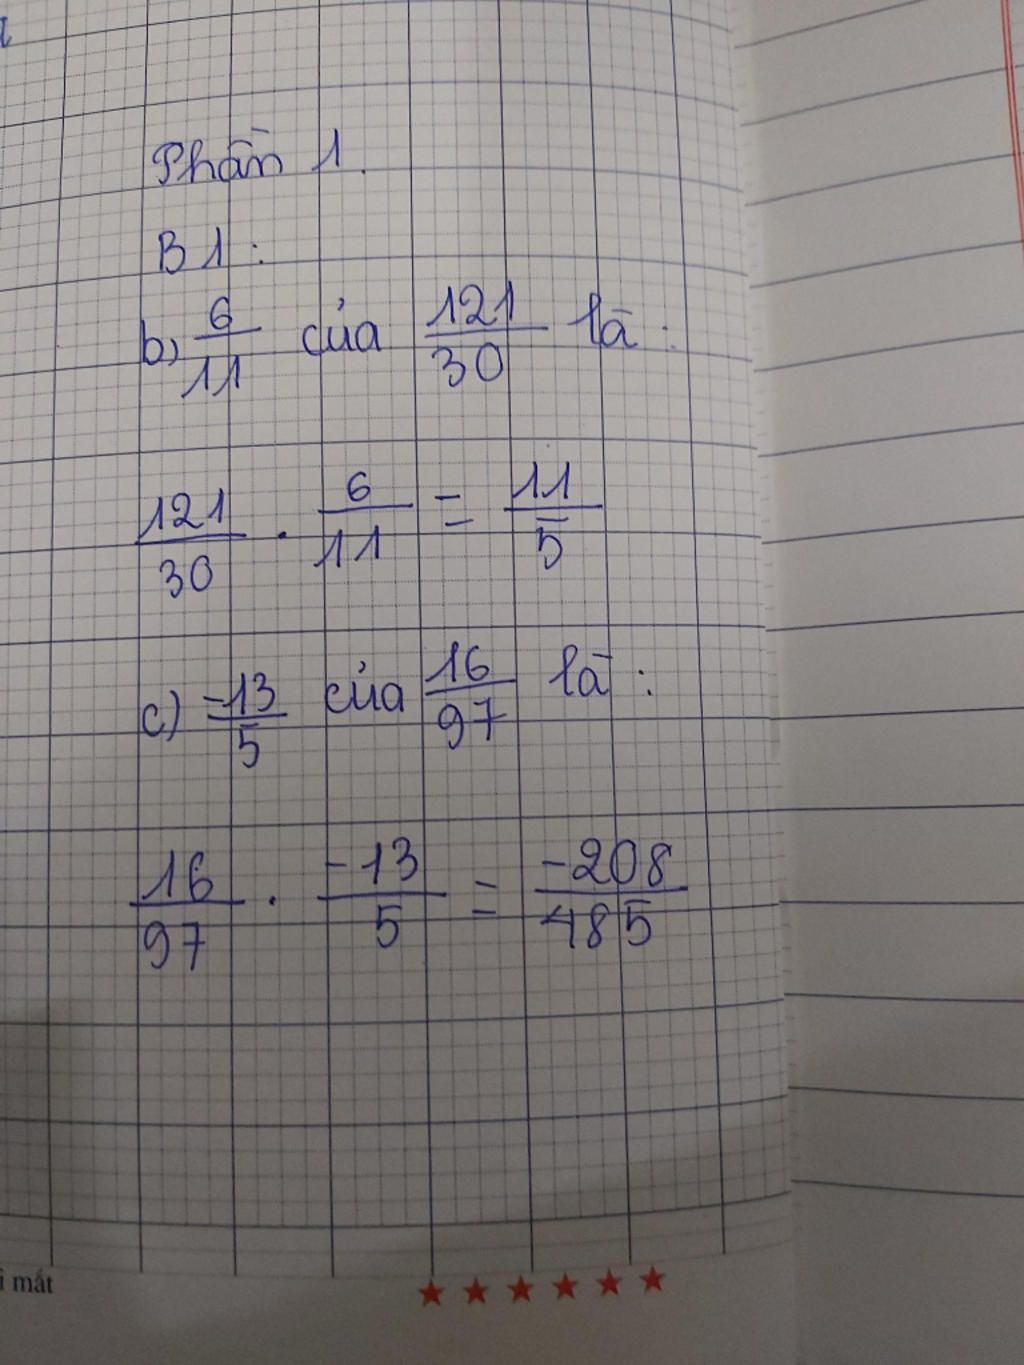 Phần 1.
B1:
b) 6/11 của 121/30 là:
121/30 . 6/11 = 11/5
c) -13/5 của 16/97 là:
16/97 . -13/5 = -208/485
mắt